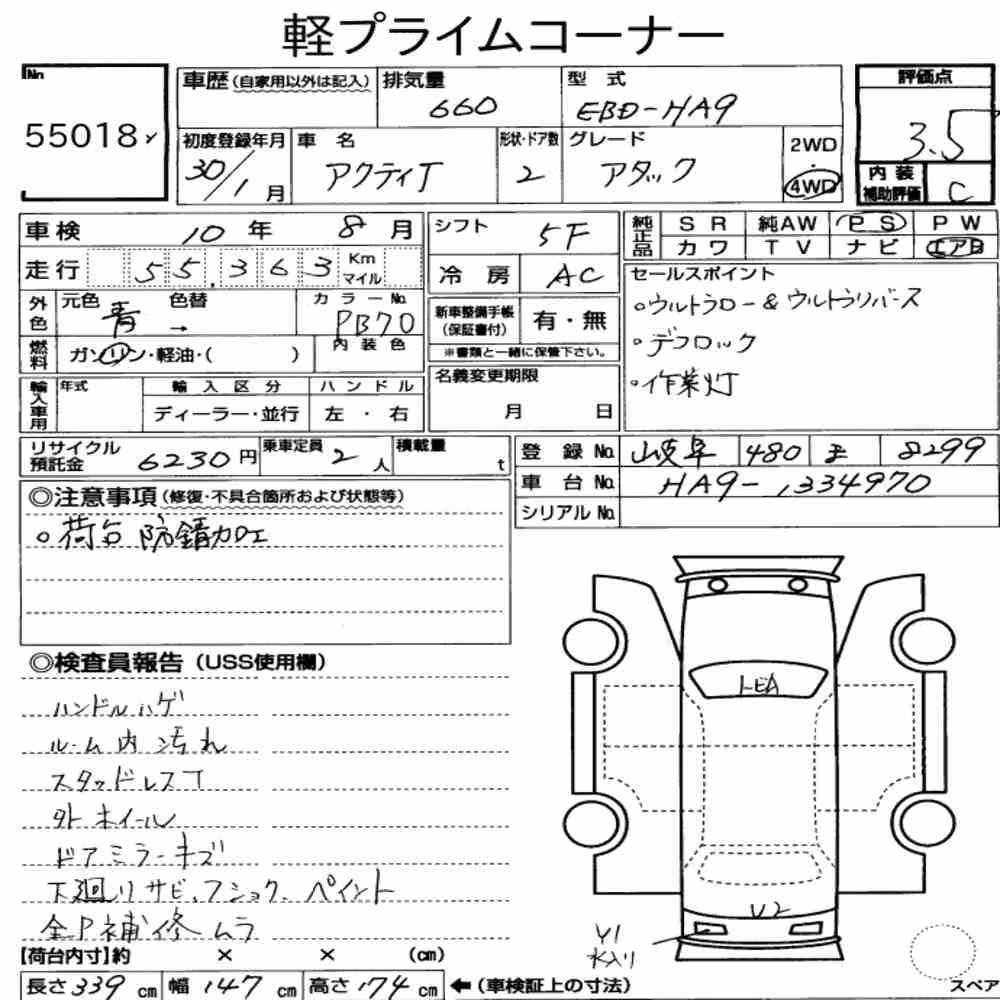 軽プライムコーナー
No
55018
車歴(自家用以外は記入)
排気量
660
型式
EBD-HA9
評価点
3.5
初度登録年月
30/1月
車名
アクティT
形状・ドア数
2
グレード
アタック
2WD
・
4WD
内装
補助評価
C
車検 10年 8月
シフト
5F
純正品
SR 純AW PS PW
カワ TV ナビ エアB
走行 55,363 Km
マイル
冷房
AC
セールスポイント
。ウルトラロー & ウルトラリバース
。デフロック
。作業灯
外色
元色 青 色替 →
カラーNo.
PB70
新車整備手帳
(保証書付)
有・無
※書類と一緒に保管下さい。
燃料
ガソリン・軽油・( )
内装色
輸入車用
年式
輸入区分
ディーラー・並行
ハンドル
左・右
名義変更期限
月 日
リサイクル
預託金
6230円
乗車定員
2人
積載量
t
登録No. 岐阜 480 8299
車台No. HA9-1334970
シリアルNo.
◎注意事項(修復・不具合箇所および状態等)
。荷台 防錆加工
◎検査員報告(USS使用欄)
ハンドルハゲ
ルーム内 汚れ
スタッドレスT
外ホイール
ドアミラーキズ
下廻りサビ、フショク、ペイント
全P補修ムラ
トビA
U2
Y1
水入り
【荷台内寸】約 × × (cm)
長さ339cm 幅147cm 高さ174cm ←(車検証上の寸法)
スペア